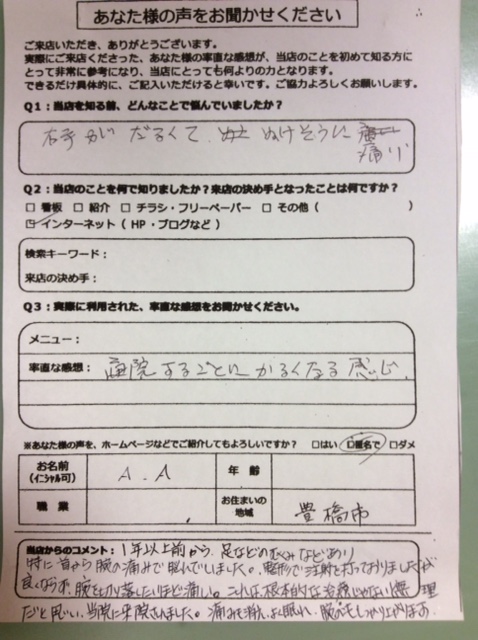 あなた様の声をお聞かせください
ご来店いただき、ありがとうございます。
実際にご来店くださった、あなた様の率直な感想が、当店のことを初めて知る方に
とって非常に参考になり、当店にとっても何よりの力となります。
できるだけ具体的に、ご記入いただけると幸いです。ご協力よろしくお願いします。
Q1：当店を知る前、どんなことで悩んでいましたか？
右手がだるくて、ぬけそうに
痛い
Q2：当店のことを何で知りましたか？来店の決め手となったことは何ですか？
□ 看板 □ 紹介 □ チラシ・フリーペーパー □ その他（ ）
☑ インターネット（ HP・ブログなど ）
検索キーワード：
来店の決め手：
Q3：実際に利用された、率直な感想をお聞かせください。
メニュー：
率直な感想：通院するごとにかるくなる感じ。
※あなた様の声を、ホームページなどでご紹介してもよろしいですか？ □はい ☑匿名で □ダメ
お名前 A．A 年 齢
（イニシャル可）
職 業 お住まいの 豊橋市
地域
当店からのコメント：1年以上前から、足などのむくみなどあり
特に首から腕の痛みで眠れんでしました。整形で注射を打っておりましたが
良くならず、腕を切り落したいほど痛い。これは根本的な治療じゃない無理
だと思い、当院に来院されました。痛みも消え、よく眠れ、腕もしっかり上がります。